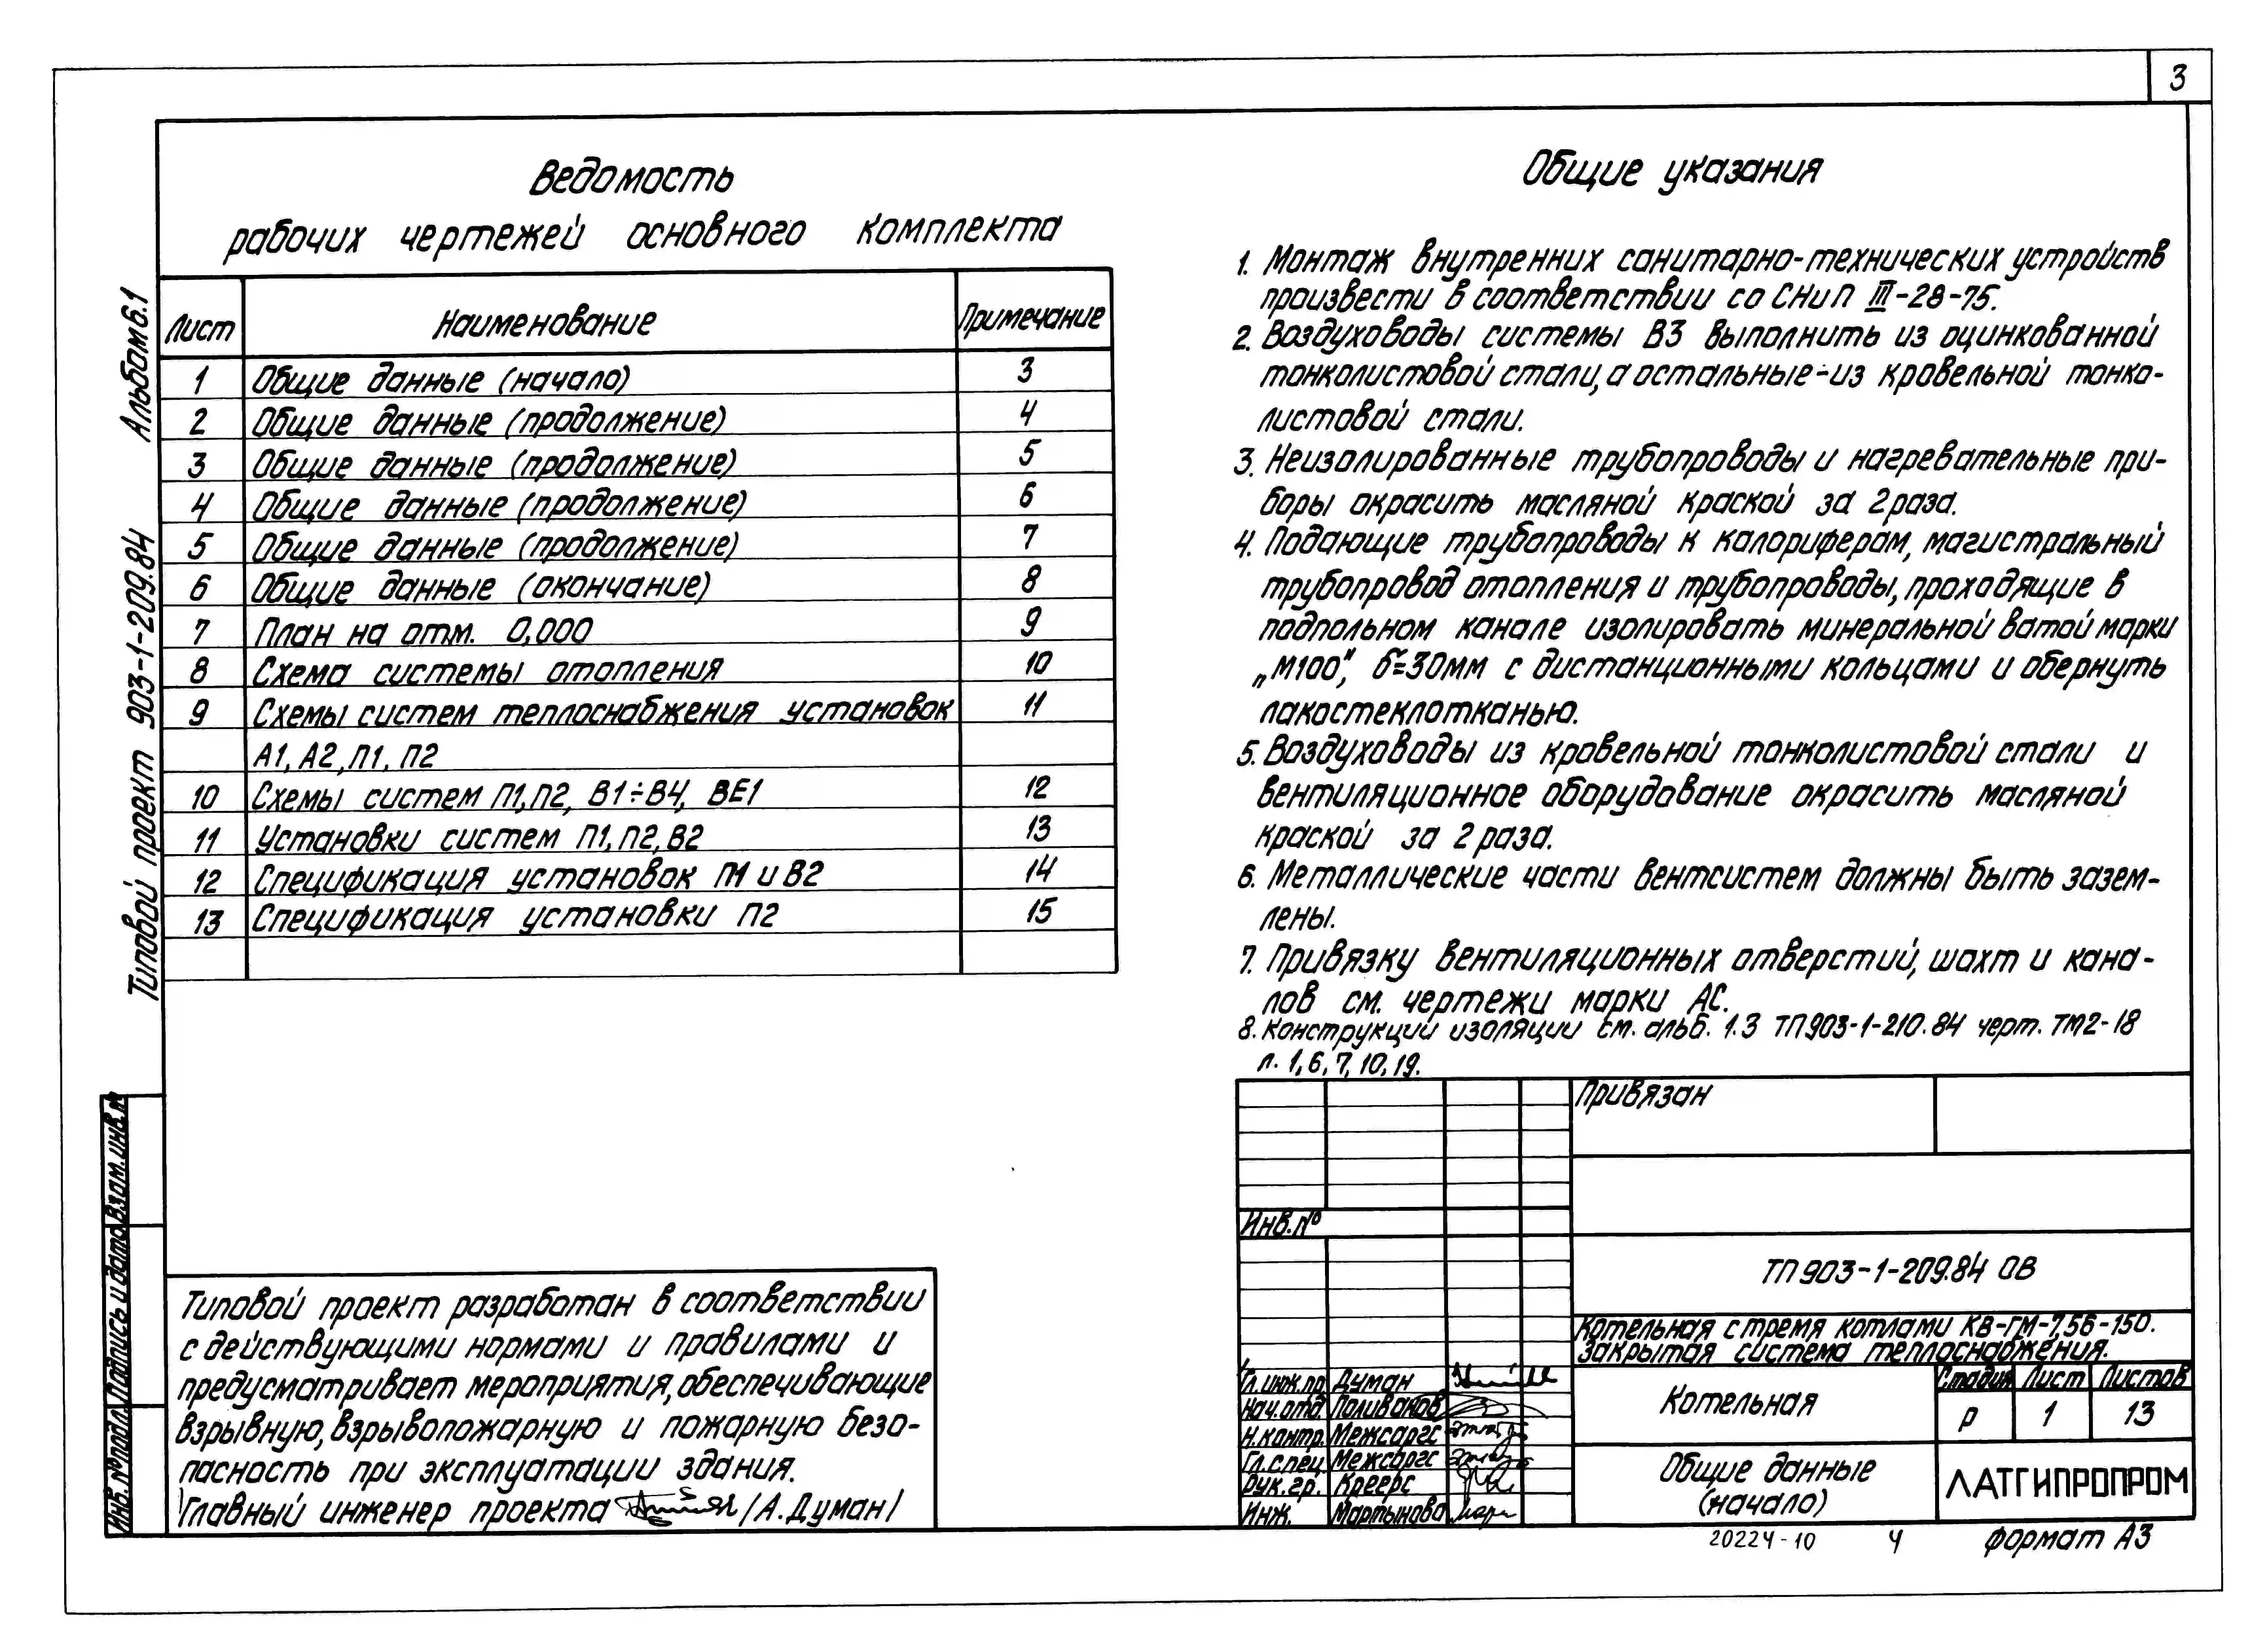 3
Ведомость
рабочих чертежей основного комплекта
Лист Наименование Примечание
1 Общие данные (начало) 3
2 Общие данные (продолжение) 4
3 Общие данные (продолжение) 5
4 Общие данные (продолжение) 6
5 Общие данные (продолжение) 7
6 Общие данные (окончание) 8
7 План на отм. 0,000 9
8 Схема системы отопления 10
9 Схемы систем теплоснабжения установок 11
А1, А2, П1, П2
10 Схемы систем П1, П2, В1÷В4, ВЕ1 12
11 Установки систем П1, П2, В2 13
12 Спецификация установок П1 и В2 14
13 Спецификация установки П2 15
Общие указания
1. Монтаж внутренних санитарно-технических устройств
произвести в соответствии со СНиП III-28-75.
2. Воздуховоды системы В3 выполнить из оцинкованной
тонколистовой стали, а остальные - из кровельной тонко-
листовой стали.
3. Неизолированные трубопроводы и нагревательные при-
боры окрасить масляной краской за 2 раза.
4. Подающие трубопроводы к калориферам, магистральный
трубопровод отопления и трубопроводы, проходящие в
подпольном канале изолировать минеральной ватой марки
„М100", δ=30мм с дистанционными кольцами и обернуть
лакостеклотканью.
5. Воздуховоды из кровельной тонколистовой стали и
вентиляционное оборудование окрасить масляной
краской за 2 раза.
6. Металлические части вентсистем должны быть зазем-
лены.
7. Привязку вентиляционных отверстий, шахт и кана-
лов см. чертежи марки АС.
8. Конструкции изоляции см. альб. 1.3 ТП903-1-210.84 черт. ТМ2-18
л. 1, 6, 7, 10, 19.
Альбом 6.1
Типовой проект 903-1-209.84
Взам. инв. №
Подпись и дата
Инв. № подл.
Типовой проект разработан в соответствии
с действующими нормами и правилами и
предусматривает мероприятия, обеспечивающие
взрывную, взрывопожарную и пожарную безо-
пасность при эксплуатации здания.
Главный инженер проекта /А. Думан/
Привязан
Инв. №
ТП 903-1-209.84 ОВ
Котельная с тремя котлами КВ-ГМ-7,56-150.
Закрытая система теплоснабжения.
Гл. инж. пр. Думан
Нач. отд. Поливанов
Н. контр. Межсаргс
Гл. спец. Межсаргс
Рук. гр. Креерс
Инж. Мартынова
Котельная
Стадия Лист Листов
Р 1 13
Общие данные
(начало)
ЛАТГИПРОПРОМ
20224-10 4 формат А3